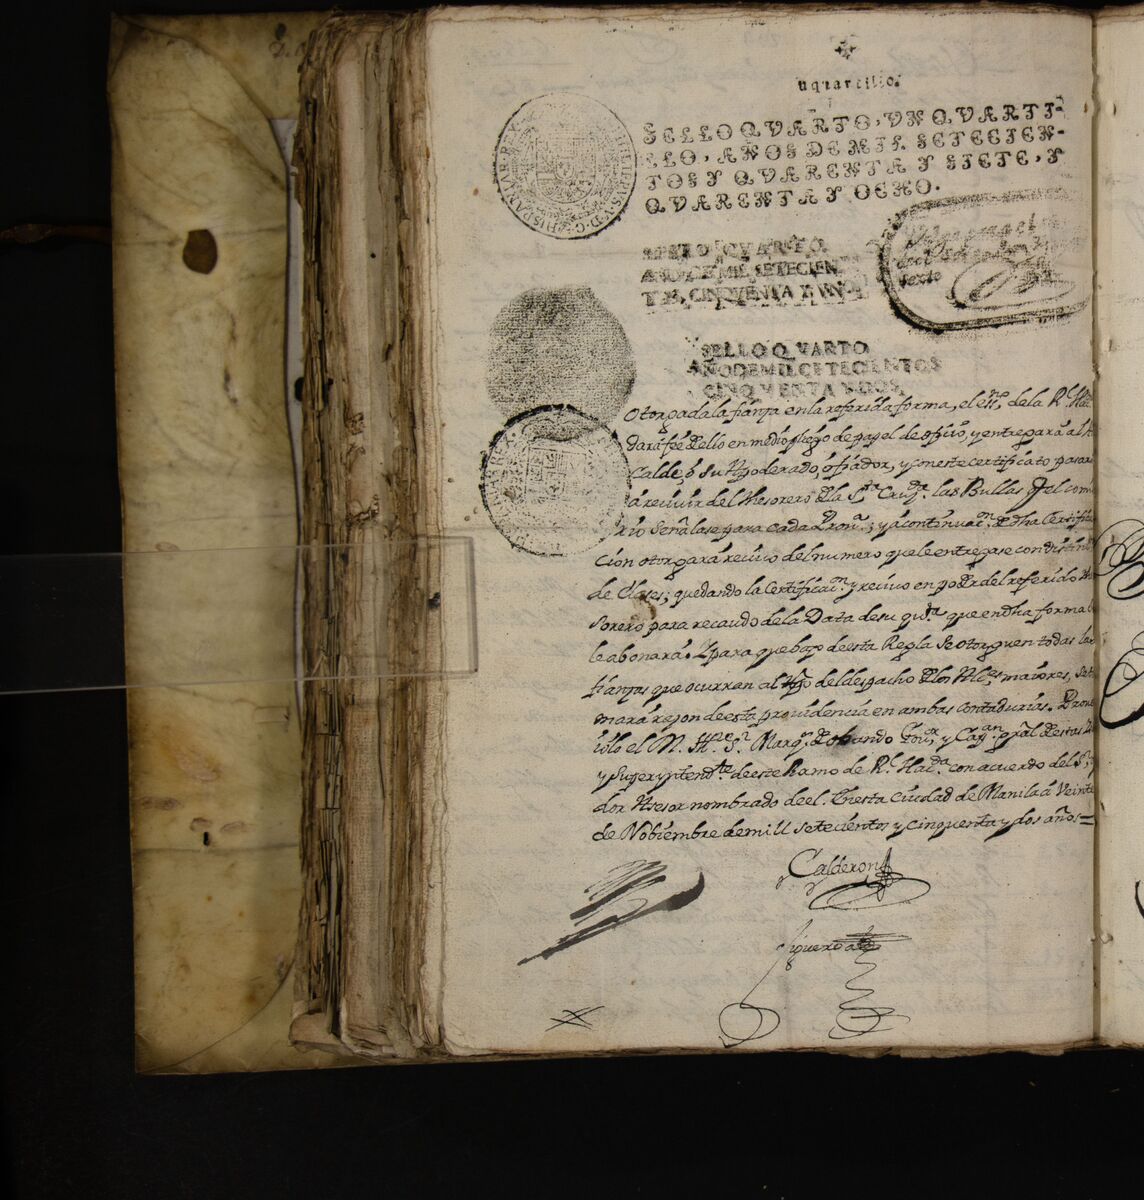 uquartillo.
SELLO QVARTO, VN QVARTI-
LLO, AÑOS DE MIL SETECIEN-
TOS Y QVARENTA Y SIETE, Y
QVARENTA Y OCHO.
PHILIPPVS V D G HISPANIAR REX
SELLO CVARTO
AÑO DE MIL SETECIEN
TOS, CINQVENTA Y VNO
SELLO QVARTO
AÑO DE MIL CETECIENTOS
CINQVENTA Y DOS,
Otorgada la fianza en la referida forma, el esno. de la Rl. Haz
dará feé dello en medio pliego de papel de ofizio, y entregará al
Calde, ó su Apoderado, ó fiador, y con este certificato pasará
á recivir del thesorero de la Sta. Cruzda. las Bullas q el comi
rio Señalase para cada Prova.; y á continuacn. de dha Certifica
cion otorgará recivo del numero que le entregase con distin
de Clases; quedando la Certificacn. y recivo en poder del referido the
sorero para recaudo de la Data de su qta. que en dha forma
le abonará. Y para que bajo de esta Regla se otorguen todas las
fianzas que ocurren al tpo del despacho de los Alces. maiores, se to
mará razon de esta providencia en ambas contadurias. Prove
iólo el M. Ille. Sr. Marqs. de obando Govr. y Capan. gral de estas
y Superyntendte. de este Ramo de Rl. Hacda. con acuerdo del Sr.
dor Asesor nombrado de el. En esta Ciudad de Manila á Veinte
de Nobiembre de mill setecientos y cinquenta y dos años=
Calderon
Figueroa